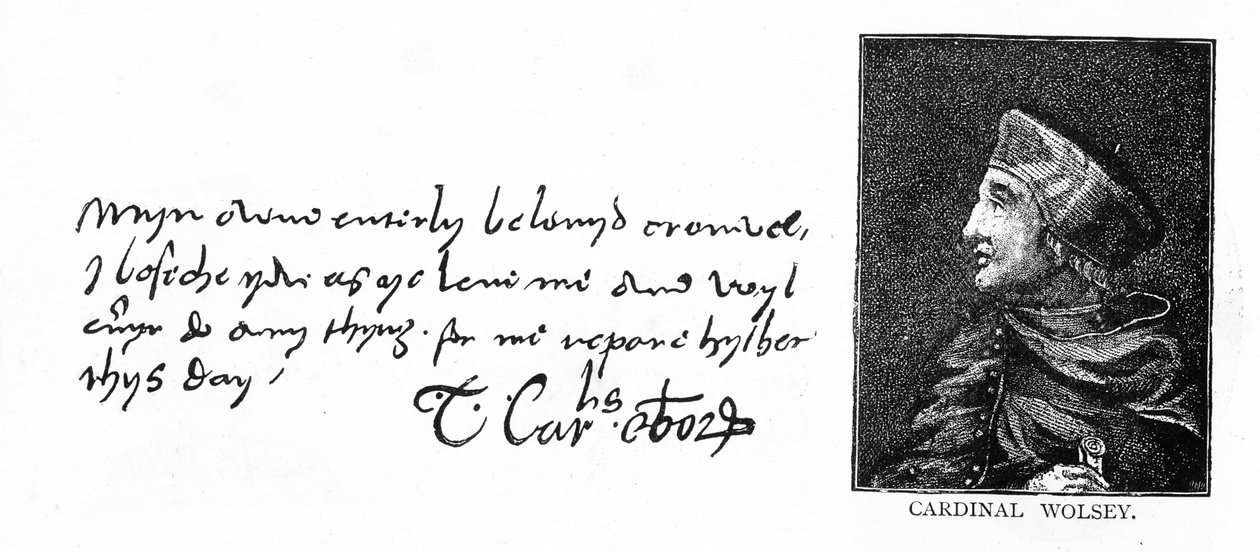 Myn owne enterly belovyd cromwel,
I beseche you as ye love me and wyl
evyr do any thyng for me repare hyther
thys day /
T. Car.lis ebor
CARDINAL WOLSEY.